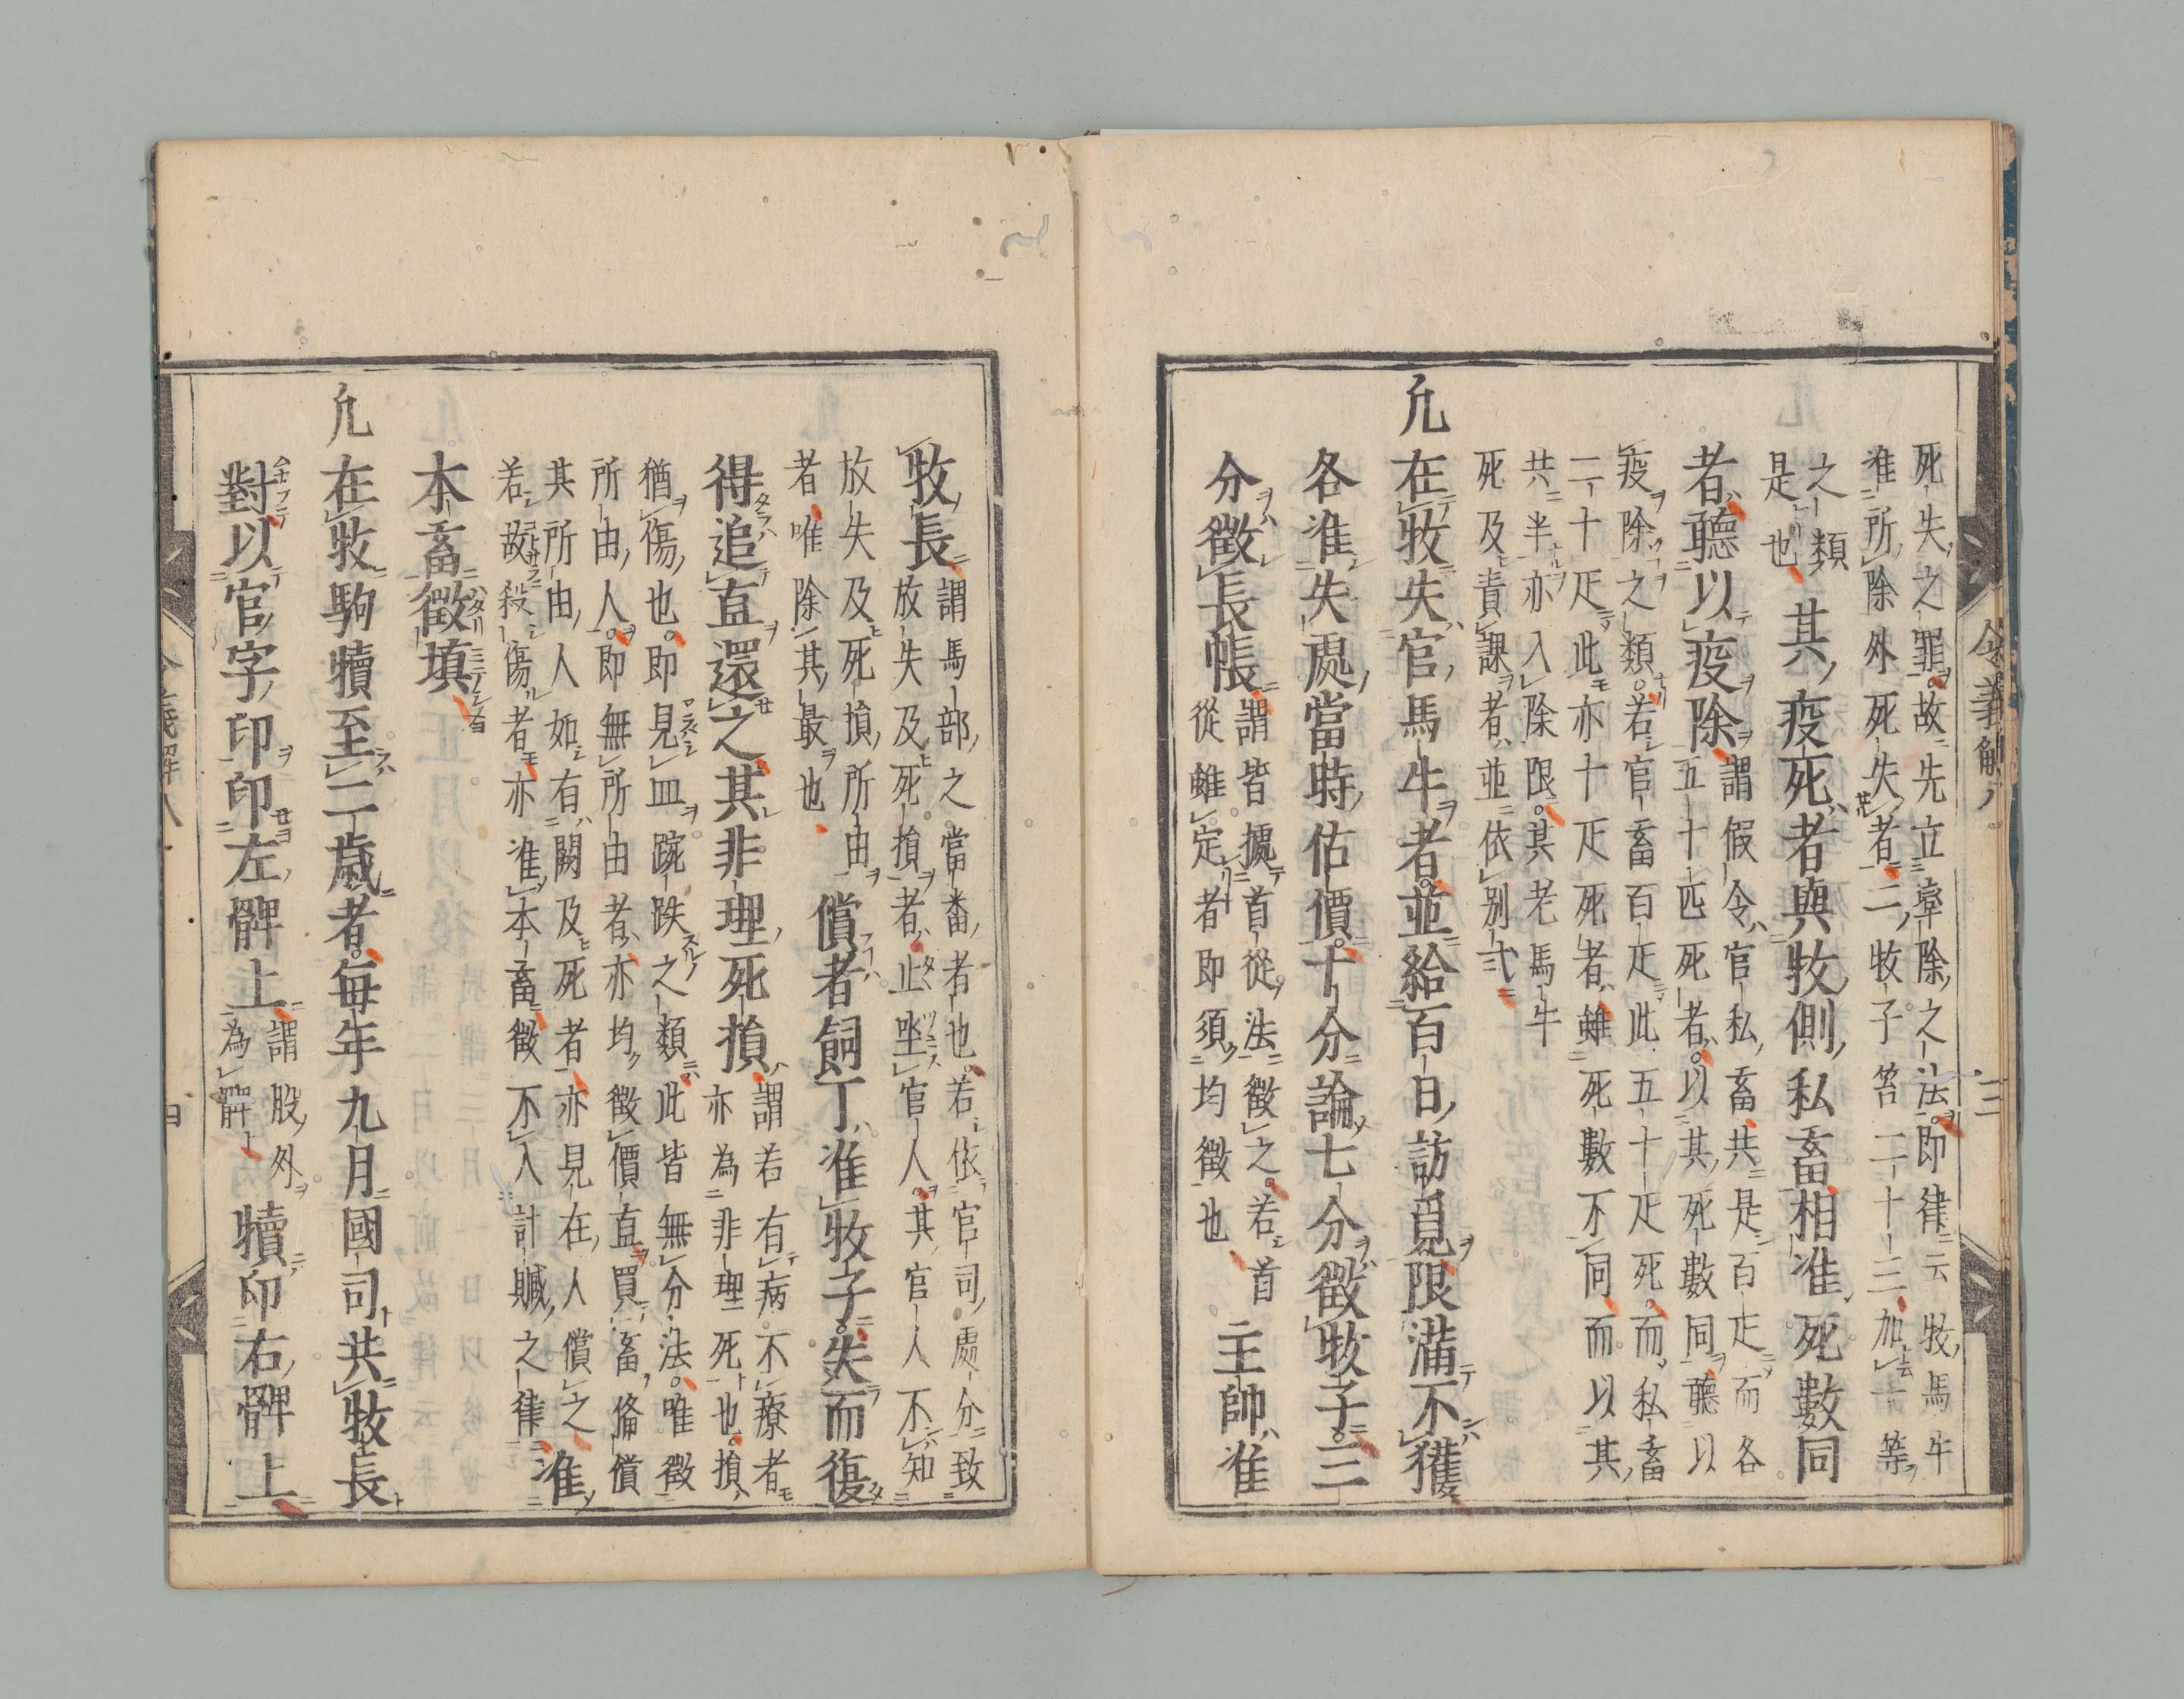 死失之罪故先立率除之法即律云牧馬牛
准所除外死失者二牧子笞二十三加一等
之類
是也其疫死者與牧側私畜相准死數同
者聽以疫除謂假令官私畜共是百疋而各
五十匹死者以其死數同聽以
疫除之類若官畜百疋此五十疋死而私畜
二十疋此亦十疋死者雖死數不同而以其
共半亦入除限其老馬牛
死及責課者並依別式
凡在牧失官馬牛者並給百日訪覓限滿不獲
各准失處當時估價十分論七分徵牧子三
分徵長帳謂皆據首從法徵之若首
從雖定者即須均徵也主帥准
令義解八
三
牧長謂馬部之當番者也若依官司處分致
放失及死損者止坐官人其官人不知
放失及死損所由
者唯除其最也償者飼丁准牧子失而復
得追直還之其非理死損謂若有病不療者
亦為非理死也損
猶傷也即見血踠跌之類此皆無分法唯徵
所由人即無所由者亦均徵價直買畜備償
其所由人如有闕及死者亦見在人償之准
若故殺傷者亦准本畜徵不入計贓之律
本畜徵填
凡在牧駒犢至二歲者每年九月國司共牧長
對以官字印印左髀上謂股外
為髀犢印右髀上